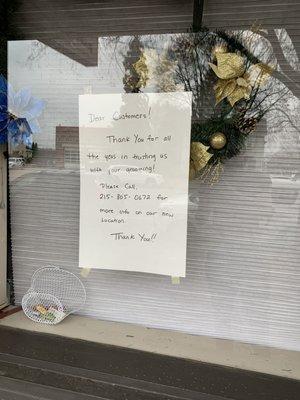 Dear Customers!
Thank You for all
the years in trusting us
with your grooming!
Please Call,
215-805-0672 for
more info on our new
Location.
Thank You!!